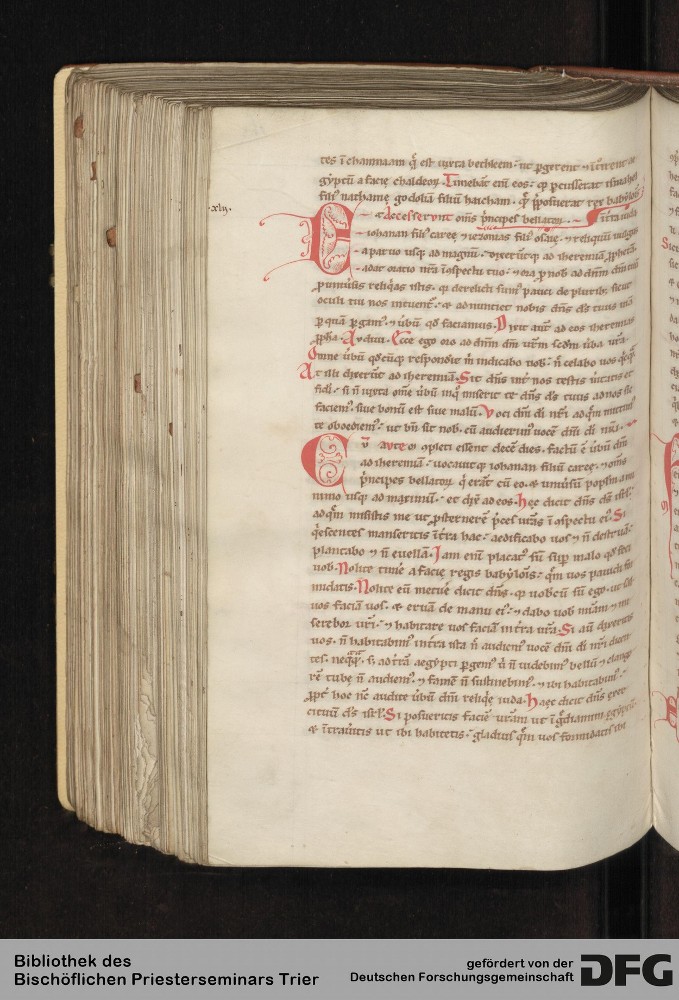 tes ī chamaam q̄ est iuxta bethleem· ut pgerent ⁊ ītrent
gyptū a facie chaldeoꝝ· Timebāt eni eos· qꝫ pcusserat ismahel
filiꝰ nathanię godoliā filiū haicham· q̄ pposuerat rex babylōis
xlij.
Et accesserunt om̄s pncipes bellatoꝝ ī tra iuda
iohanan filiꝰ careę ⁊ iezonias filiꝰ osaię· ⁊ reliquū uulgus
a paruo usqꝫ ad magnū· dixerūtqꝫ ad iheremiā ꝓphetā·
cadat oratio nr̄a ī ꝯspectu tuo· ⁊ ora ꝓ nob ad dn̄m dm̄ tuū
ꝓ uniuūsis reliqas istis· qꝫ derelicti sumꝰ pauci de pluribꝫ sicut
oculi tui nos intuentᷣ· ⁊ adnunciet nobis dn̄s ds̄ tuus uiā
p quā pgamꝰ· ⁊ ūbū qd̄ faciamus· Dixit aut̄ ad eos iheremias
ꝓpha· Audiui· Ecce ego oro ad dn̄m dm̄ ur̄m scd̄m ūba ur̄a·
Omne ūbū qd̄cūqꝫ responderit m̄ indicabo uob· n̄ celabo uos
At illi dixerūt ad iheremiā· Sit dn̄s int̄ nos testis ueritatis et
fidei· si n̄ iuxta om̄e ūbū inqꝰ miserit te dn̄s ds̄ tuus ad nos sic
faciemꝰ· siue bonū est siue malū· Voci dn̄i di nr̄i ad qm̄ mittimꝰ
te oboediemꝰ· ut bn̄ sit nob· cū audierimꝰ uocē dn̄i di nr̄i·
Cū autē ꝯpleti essent decē dies· factū ē ūbū dn̄i
ad iheremiā· uocauitqꝫ iohanan filiū careę· ⁊ om̄s
pncipes bellatoꝝ q̄ erāt cū eo· ⁊ uniūsū poplm a mi
nimo usqꝫ ad maximū· et dix̄ ad eos· hęc dicit dn̄s ds̄ isrl̄·
ad qm̄ misistis me ut ꝓsternerē pces ur̄as ī ꝯspectu eiꝰ· Si
q̄escentes manseritis ī tra hac· aedificabo uos ⁊ n̄ destruā·
plantabo ⁊ n̄ euellā· Iam eni placatꝰ sū sup malo qd̄ feci
uob· Nolite timē a facie regis babylōis· qm̄ uos pauidi
midatis· Nolite eū metuē dicit dn̄s· qꝫ uobcū sū ego· ut sal
uos faciā uos· ⁊ eruā de manu eiꝰ· ⁊ dabo uob mīam ⁊ mi
serebor ur̄i· ⁊ habitare uos faciā in tra ur̄a· Si aū dixeritis
uos· n̄ habitabimꝰ in tra ista n̄ audiemꝰ uocē dn̄i di nr̄i dicen
tes· neqqᷓqᷓ· s ad trā aegypti pgemꝰ· ubi n̄ uidebimꝰ bellū ⁊ clango
rē tubę n̄ audiemꝰ· ⁊ famē n̄ sustinebimꝰ· ⁊ ibi habitabimꝰ·
ꝓpt̄ hoc nc̄ audite ūbū dn̄i reliqę iuda· haec dicit dn̄s exer
cituū ds̄ isrl̄· Si posueritis faciē ur̄am ut ī gdiamini egyptū
⁊ ītraūitis ut ibi habitetis· gladius qm̄ uos formidatis ibi
Bibliothek des
Bischöflichen Priesterseminars Trier
gefördert von der
Deutschen Forschungsgemeinschaft
DFG